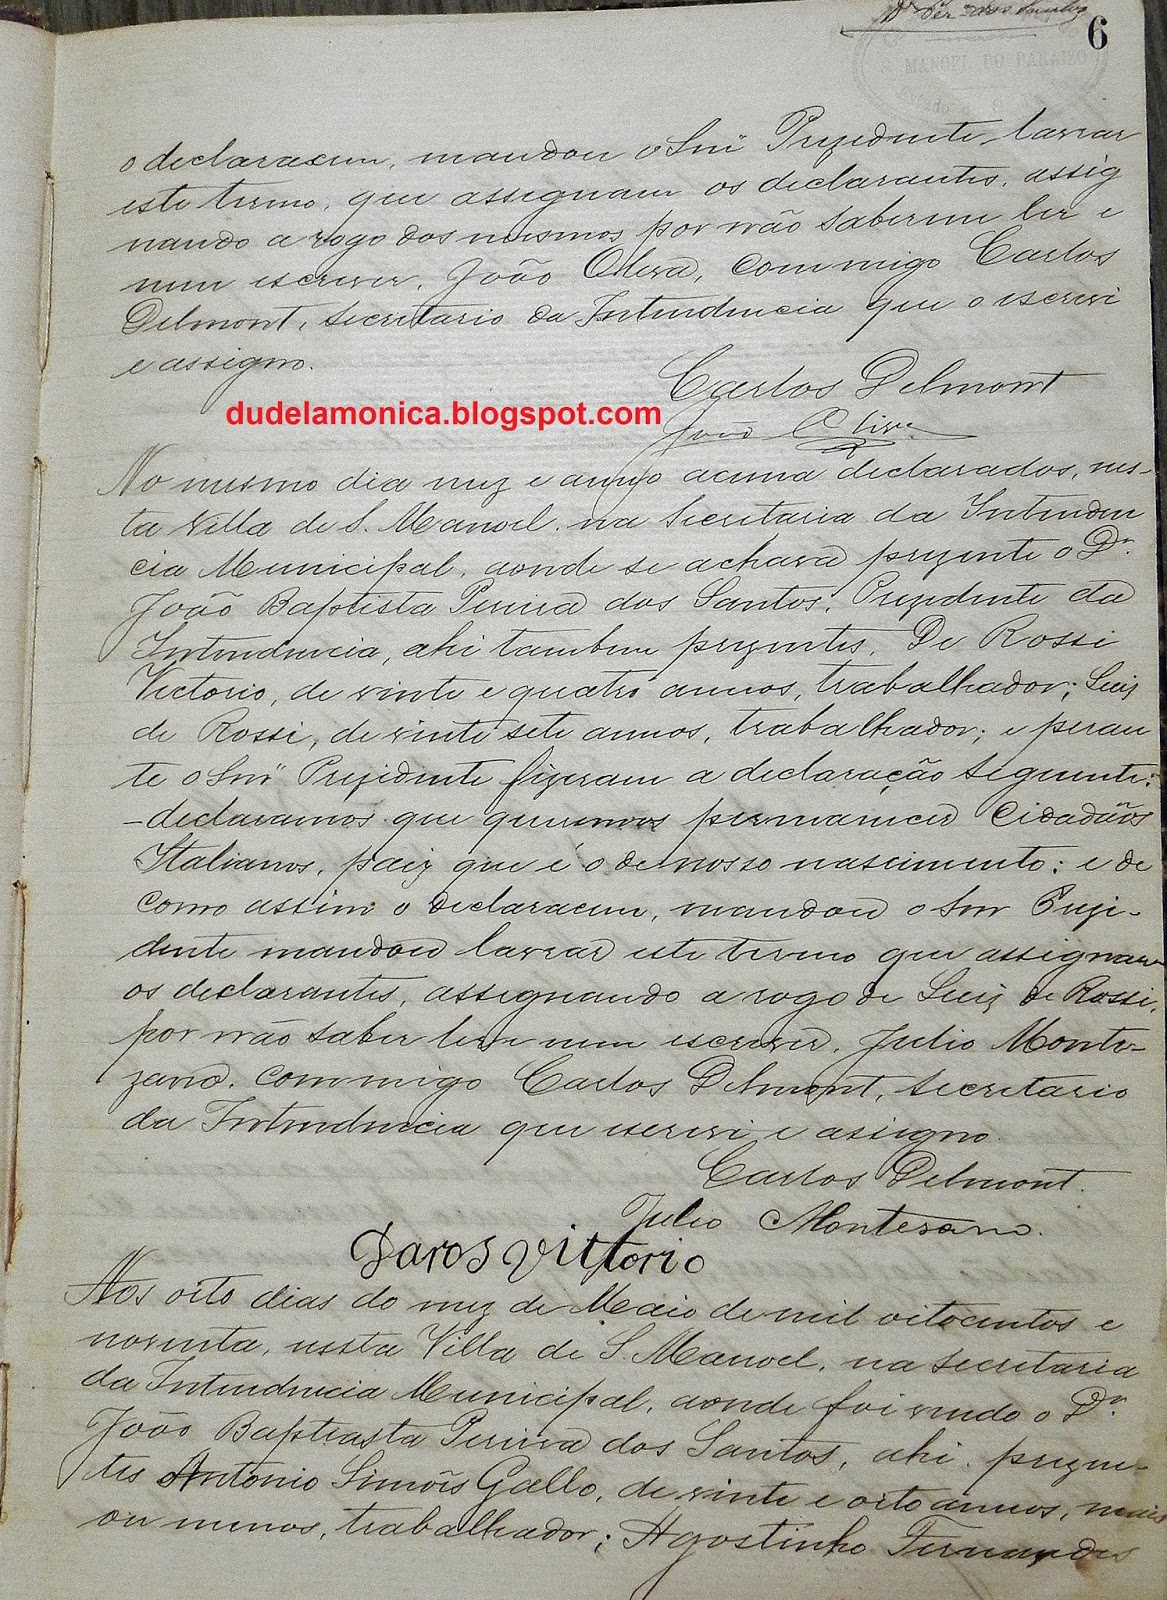 6
MANOEL DO PARAIZO
o declararem, mandou o Snr̃ Prezidente lavrar
este termo, que assignam os declarantes, assig
nando a rogo dos mesmos por não saberem ler e
nem escrever, João Oliva, commigo Carlos
Delmont, secretario da Intendencia que o escrevi
e assigno.
Carlos Delmont
dudelamonica.blogspot.com
João Oliva
No mesmo dia mez e anno acima declarados, nes-
ta Villa de S. Manoel, na Secretaria da Intenden
cia Municipal, aonde se achava prezente o Dr.
João Baptista Pereira dos Santos, Prezidente da
Intendencia, ahi tambem prezentes, De Rossi
Victorio, de vinte e quatro annos, trabalhador; Luiz
de Rossi, de vinte sete annos, trabalhador; e peran
te o Snr̃ Prezidente fizeram a declaração seguinte:
-declaramos que queremos permanecer Cidadãos
Italianos, paiz que é o de nosso nascimento: e de
como assim o declararem, mandou o Snr Prezi-
dente mandou lavrar este termo que assignam
os declarantes, assignando a rogo de Luiz de Rossi,
por não saber ler e nem escrever, Julio Monte-
zano. commigo Carlos Delmont, secretario
da Intendencia que escrevi e assigno.
Carlos Delmont.
Julio Montesano.
Daros Vittorio
Aos oito dias do mez de Maio de mil oitocentos e
noventa, nesta Villa de S. Manoel, na secretaria
da Intendencia Municipal, aonde foi vindo o Dr.
João Baptista Pereira dos Santos, ahi prezen-
tes Antonio Simões Gallo, de vinte e oito annos, mais
ou menos, trabalhador; Agostinho Fernandes